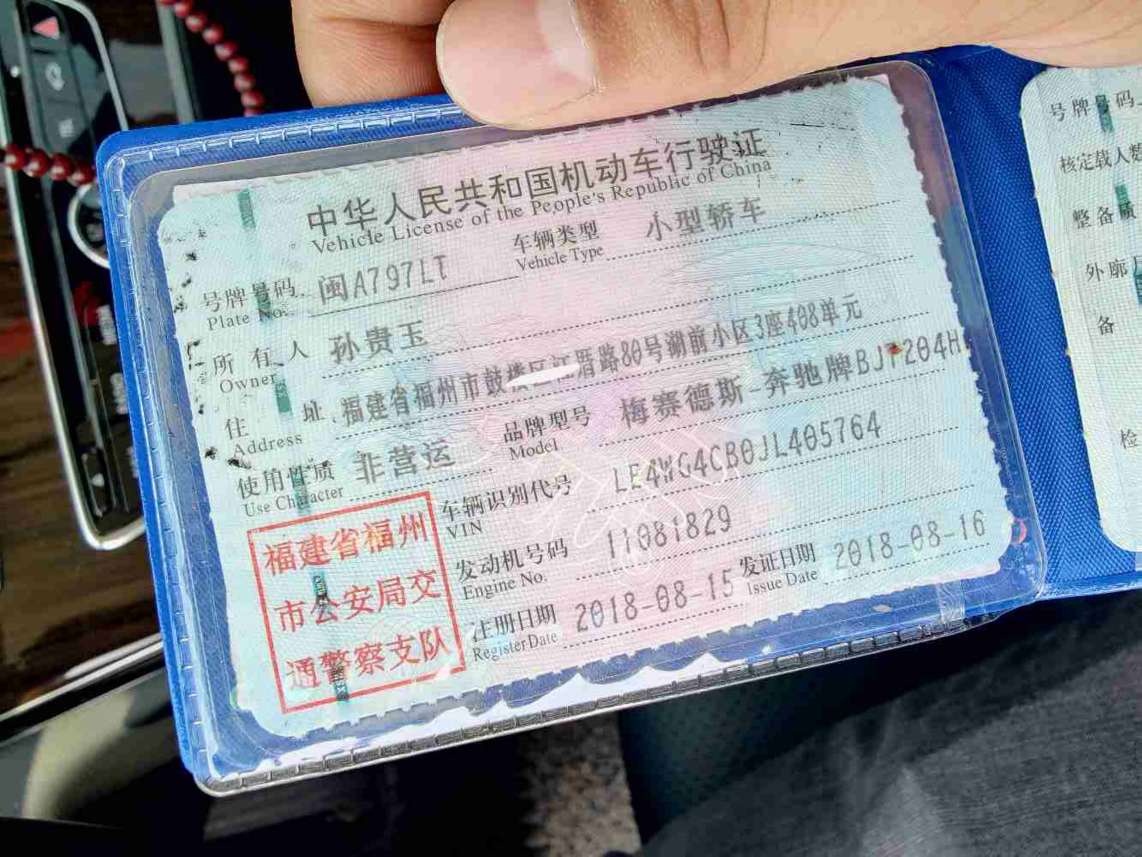 中华人民共和国机动车行驶证
Vehicle License of the People's Republic of China
号牌号码 闽A797LT 车辆类型 小型轿车
Plate No. Vehicle Type
所有人 孙贵玉
Owner
住址 福建省福州市鼓楼区江厝路80号湖前小区3座408单元
Address
使用性质 非营运 品牌型号 梅赛德斯-奔驰牌BJ7204H
Use Character Model
车辆识别代号 LE4WG4CB0JL405764
VIN
发动机号码 11081829
Engine No.
注册日期 2018-08-15 发证日期 2018-08-16
Register Date Issue Date
福建省福州
市公安局交
通警察支队
号牌号码
核定载人数
整备质
外廓
备
检